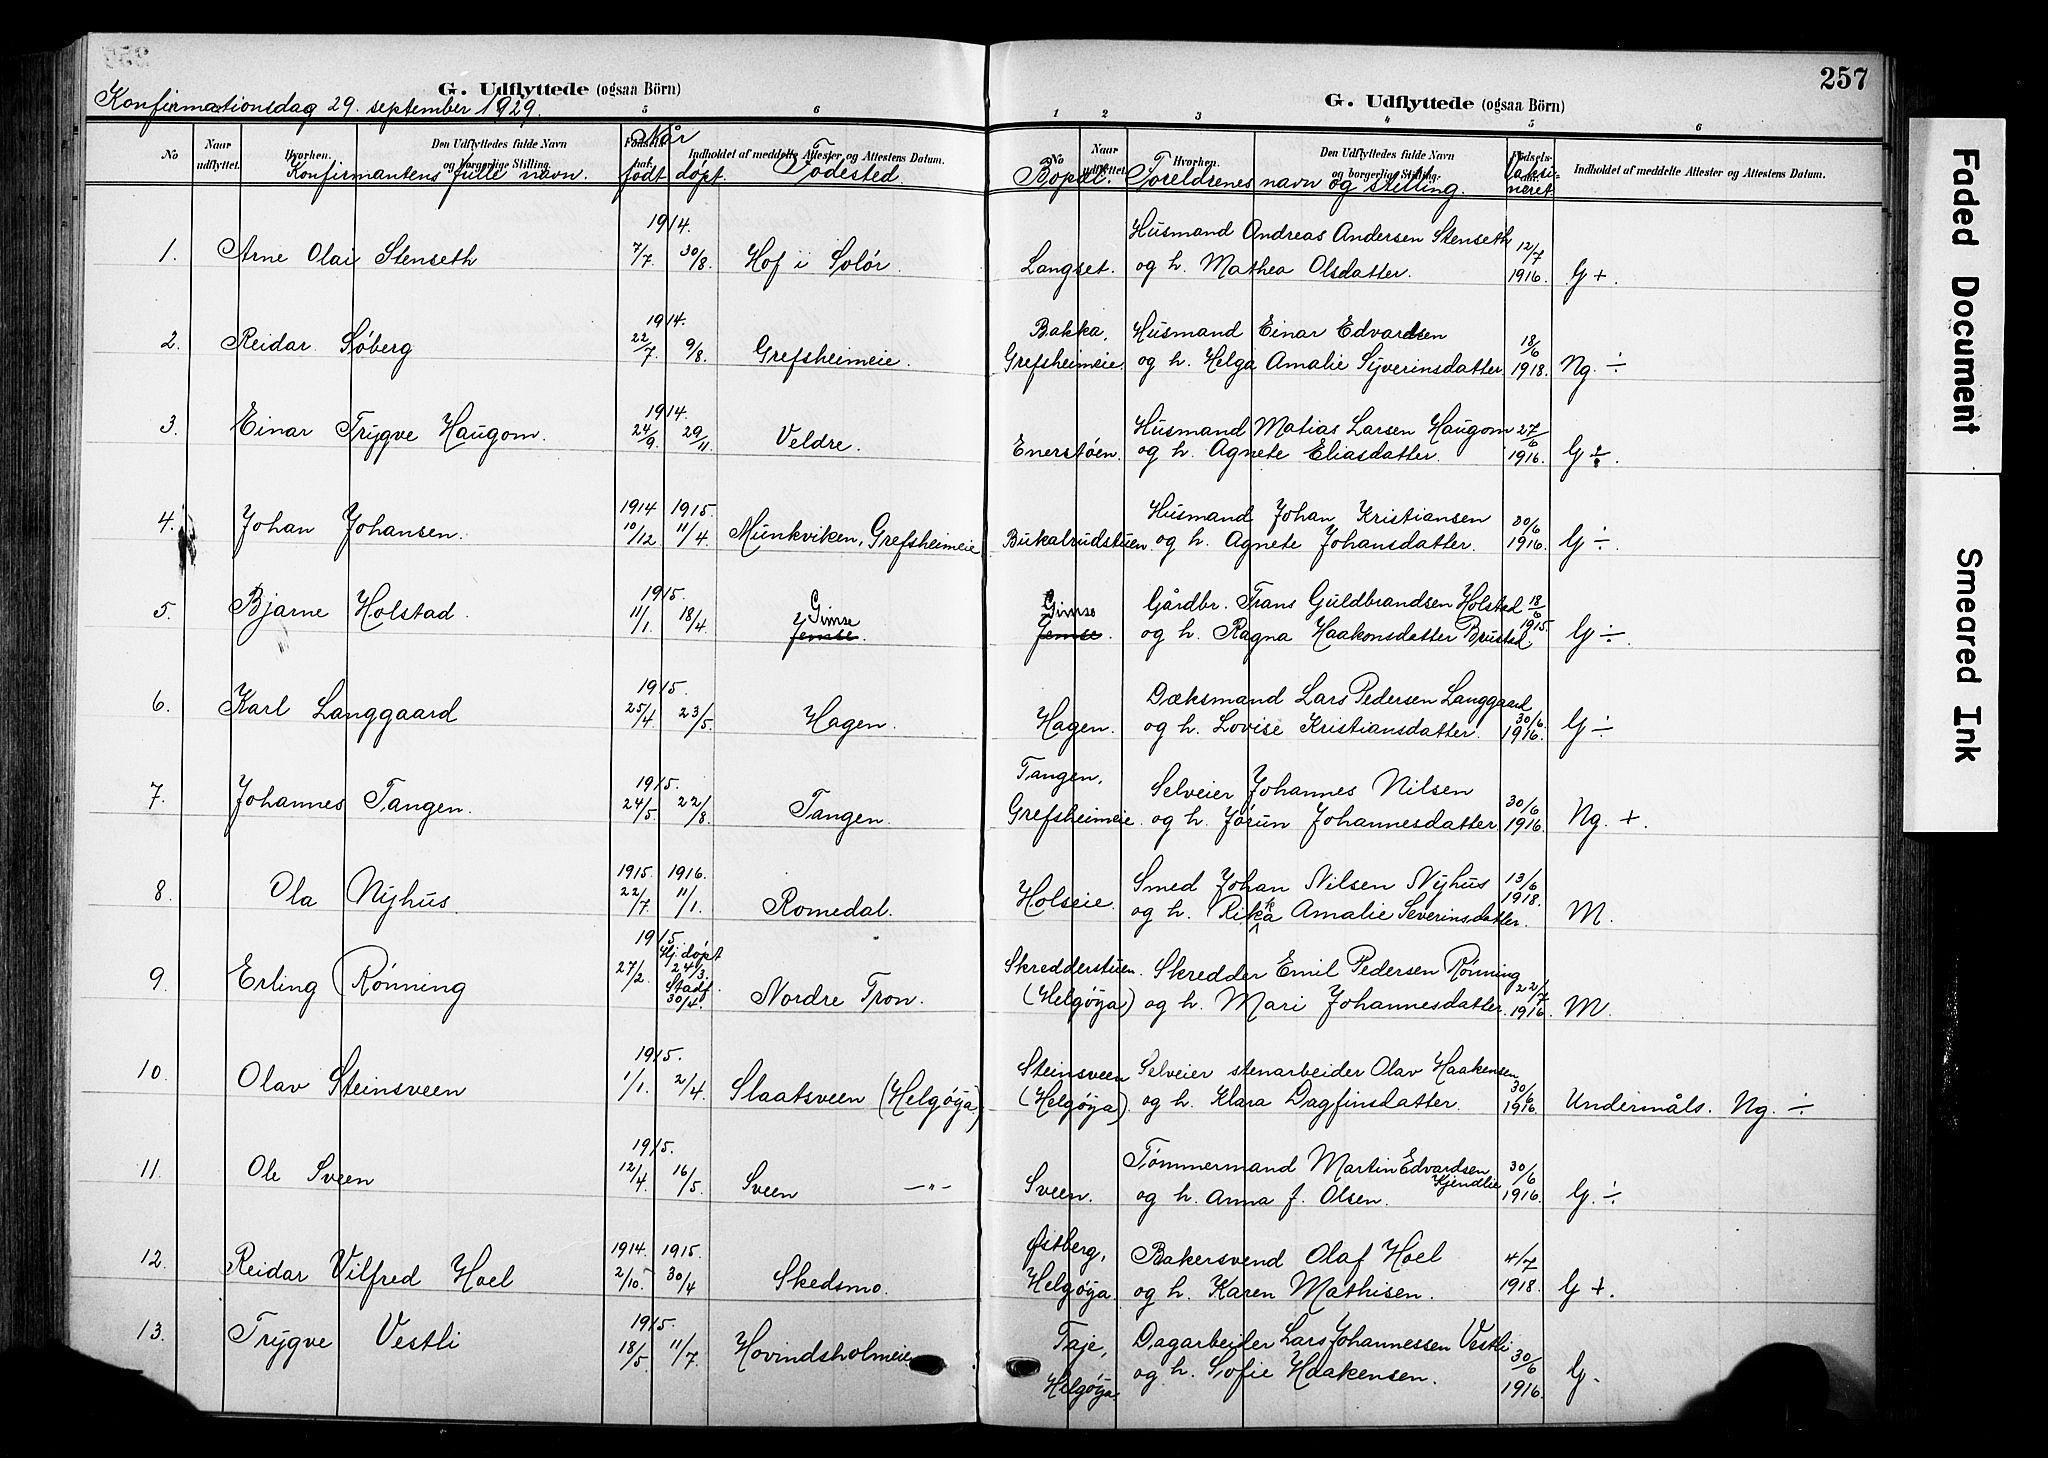 257
G. Udflyttede (ogsaa Börn)
Konfirmationsdag 29. september 1929.
5 6
No
Naar udflyttet.
Hvorhen.
Den Udflyttedes fulde Navn og borgerlige Stilling.
Indholdet af meddelte Attester og Attestens Datum.
Konfirmantens fulle navn.
Når
født døpt.
Fødested.
1. Arne Olai Stenseth 1914. 7/7. 30/8. Hof i Solør.
2. Reidar Søberg 1914. 22/7. 9/8. Grefsheimeie.
3. Einar Trygve Haugom. 1914. 24/9. 29/11. Veldre.
4. Johan Johansen. 1914 10/12. 1915. 11/4. Munkviken, Grefsheimeie
5. Bjarne Holstad. 1915. 11/1. 18/4. Gimse
Jemse.
6. Karl Langgaard 1915. 25/4. 23/5. Hagen.
7. Johannes Tangen. 1915. 24/5. 22/8. Tangen.
8. Ola Nyhus. 1915. 22/7. 1916. 11/1. Romedal.
9. Erling Rønning 1915. 27/2. Hj. døpt 24/3. Stadf. 30/4. Nordre Tron.
10. Olav Steinsveen 1915. 1/1. 2/4. Slaatsveen (Helgøya)
11. Ole Sveen 1915. 12/4. 16/5. Sveen —"—
12. Reidar Vilfred Hoel 1914. 2/10. 1915. 30/4. Skedsmo.
13. Trygve Vestli 1915. 18/5. 11/7. Hovindsholmeie
257
G. Udflyttede (ogsaa Börn)
1 2 3 4 5 6
No
Naar udflyttet.
Hvorhen.
Den Udflyttedes fulde Navn og borgerlige Stilling.
Fødsels-
Indholdet af meddelte Attester og Attestens Datum.
Bopæl. Foreldrenes navn og stilling. Vaksineret
Husmand Andreas Andersen Stenseth 12/7
Langset. og h. Mathea Olsdatter. 1916. G +.
Bakka, Husmand Einar Edvardsen 18/6
Grefsheimeie. og h. Helga Amalie Syverinsdatter 1918. Ng. ÷
Husmand Matias Larsen Haugom 27/6
Enerstøen. og h. Agnete Eliasdatter. 1916. G ÷.
Husmand Johan Kristiansen 30/6
Bukalrudstuen. og h. Agnete Johansdatter. 1916. G ÷.
Gimse Gårdbr. Frans Guldbrandsen Holstad 18/6
Jemse. og h. Ragna Haakonsdatter Brustad. 1915. G ÷.
Dæksmand Lars Pedersen Langgaard
Hagen. og h. Lovise Kristiansdatter. 30/6. 1916. G ÷
Tangen, Selveier Johannes Nilsen 30/6
Grefsheimeie. og h. Jørun Johannesdatter 1916. Ng. +.
Smed Johan Nilsen Nyhus 13/6
Holseie. og h. Rikka Amalie Severinsdatter. 1918. M.
Skredderstuen. Skredder Emil Pedersen Rønning 22/7
(Helgøya) og h. Mari Johannesdatter. 1916. M.
Steinsveen Selveier stenarbeider Olav Haakensen 30/6
(Helgøya). og h. Klara Dagfinsdatter. 1916. Undermåls. Ng. ÷
Tømmermand Martin Edvardsen Kjendlie 30/6
Sveen. og h. Anna f. Olsen. 1916. G. ÷
Østberg, Bakersvend Olaf Hoel 4/7
Helgøya. og h. Karen Mathisen. 1918. G +.
Taje, Dagarbeider Lars Johannessen Vestli 30/6
Helgøya. og h. Sofie Haakensen. 1916. G.
Faded Document
Smeared Ink